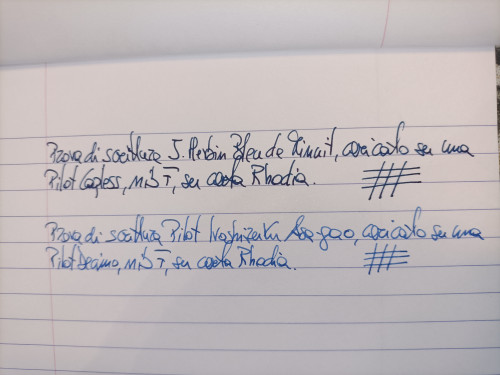 Prova di scrittura J. Herbin Bleu de Minuit, caricato su una
Pilot Capless, nib F, su carta Rhodia.
Prova di scrittura Pilot Iroshizuku Asa-gao, caricato su una
Pilot Decimo, nib F, su carta Rhodia.